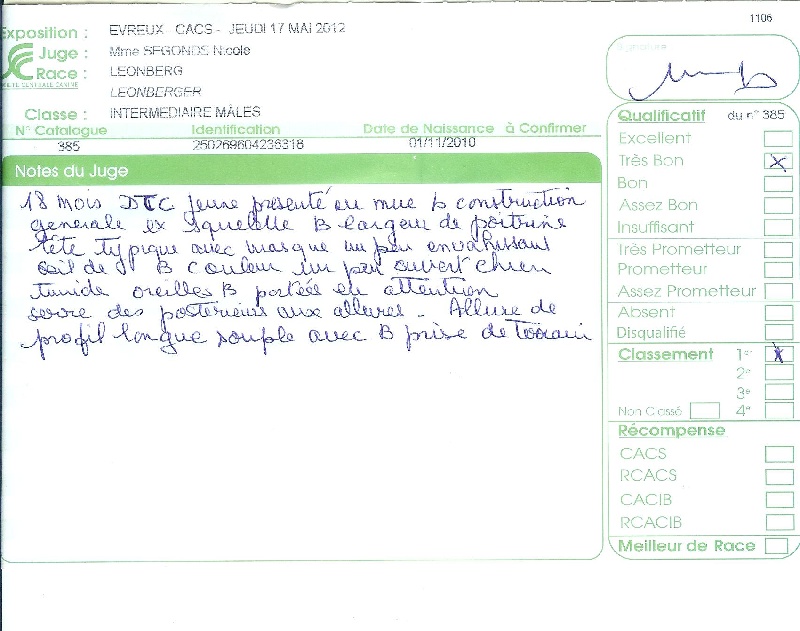 1106
Exposition : EVREUX - CACS - JEUDI 17 MAI 2012
Juge : Mme SEGONDS Nicole
Race : LEONBERG
LEONBERGER
SOCIETE CENTRALE CANINE
Classe : INTERMEDIAIRE MÂLES
N° Catalogue Identification Date de Naissance à Confirmer
385 250269604236318 01/11/2010
Notes du Juge
18 mois DTC jeune présenté en mue B construction
generale ex squelette B largeur de poitrine
tête typique avec masque un peu envahissant
oeil de B couleur un peu ouvert chien
timide oreilles B portées en attention
serre des posterieurs aux allures - Allure de
profil longue souple avec B prise de terrain
Signature
Qualificatif du n° 385
Excellent
Très Bon X
Bon
Assez Bon
Insuffisant
Très Prometteur
Prometteur
Assez Prometteur
Absent
Disqualifié
Classement 1er X
2e
3e
Non Classé 4e
Récompense
CACS
RCACS
CACIB
RCACIB
Meilleur de Race